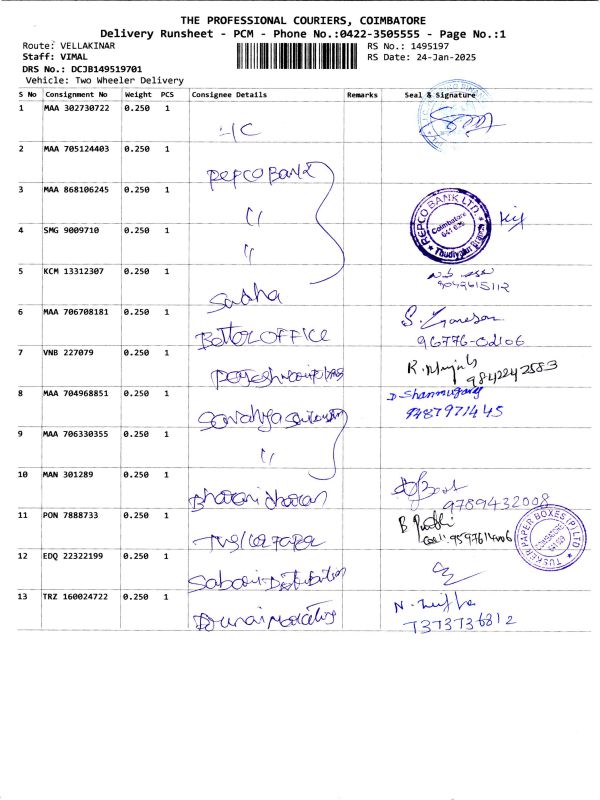 THE PROFESSIONAL COURIERS, COIMBATORE
Delivery Runsheet - PCM - Phone No.:0422-3505555 - Page No.:1
Route: VELLAKINAR
RS No.: 1495197
Staff: VIMAL
RS Date: 24-Jan-2025
DRS No.: DCJB149519701
Vehicle: Two Wheeler Delivery
S No Consignment No Weight PCS Consignee Details Remarks Seal & Signature
1 MAA 302730722 0.250 1
2 MAA 705124403 0.250 1 REPCO BANK
3 MAA 868106245 0.250 1 "
REPCO BANK LTD.
Coimbatore
641 029
Thudiyalur Branch
4 SMG 9009710 0.250 1 "
5 KCM 13312307 0.250 1 Sadha
9042615112
6 MAA 706708181 0.250 1 Better OFFICE
96776-02106
7 VNB 227079 0.250 1
9842242583
8 MAA 704968851 0.250 1
D. Shanmugaraj
9487971445
9 MAA 706330355 0.250 1 "
10 MAN 301289 0.250 1 Bhaarani dharan
9789432008
11 PON 7888733 0.250 1
TUSKER PAPER BOXES (P) LTD
12 EDQ 22322199 0.250 1 Sabari Distribution
13 TRZ 160024722 0.250 1
7373736812